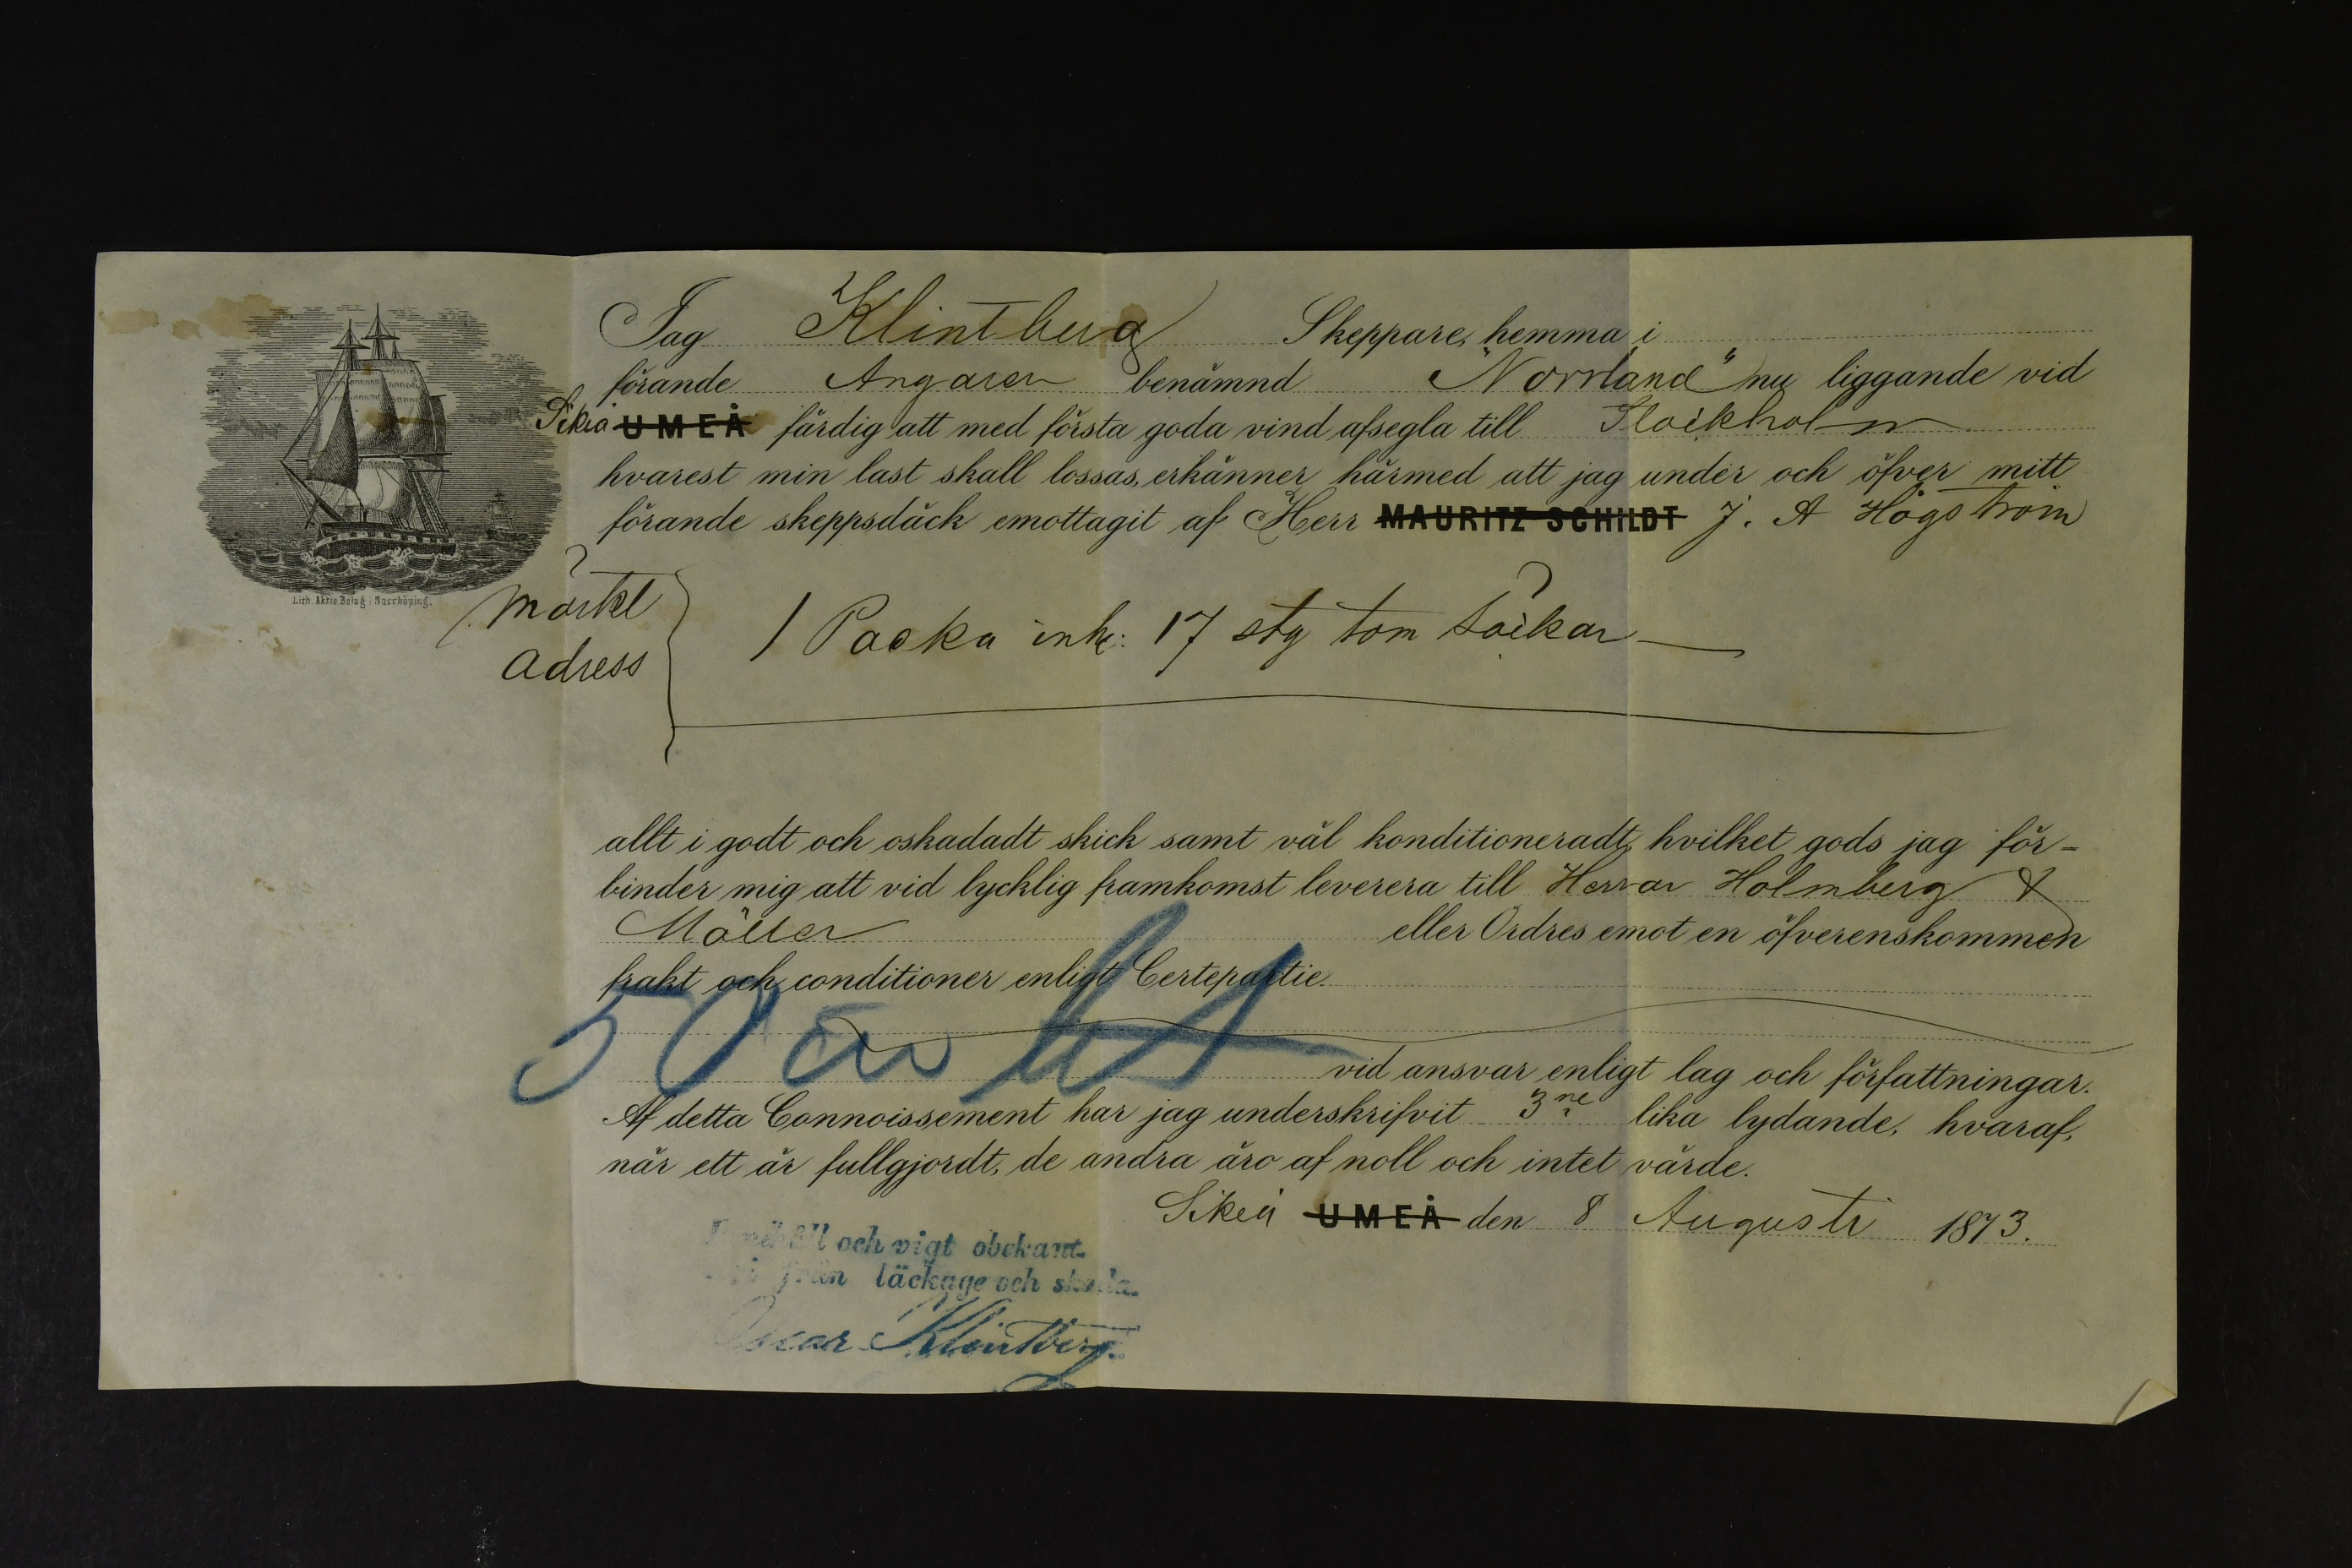 Jag Klintberg Skeppare, hemma i
förande Ångaren benämnd "Norrland" nu liggande vid
Sikeå UMEÅ färdig att med första goda vind afsegla till Stockholm
hvarest min last skall lossas, erkänner härmed att jag under och öfver mitt
förande skeppsdäck emottagit af Herr MAURITZ SCHILDT J. A Högström
Lith. Aktie Bolag i Norrköping.
Märkt
Adress
1 Packa inh: 17 stg tom säckar
allt i godt och oskadadt skick samt väl konditioneradt, hvilket gods jag för-
binder mig att vid lycklig framkomst leverera till Herrar Holmberg &
Möller eller Ordres emot en öfverenskommen
frakt och conditioner enligt Certepartie.
50 öre
vid ansvar enligt lag och författningar.
Af detta Connoissement har jag underskrifvit 3ne lika lydande, hvaraf,
när ett är fullgjordt, de andra äro af noll och intet värde.
Sikeå UMEÅ den 8 Augusti 1873.
Innehåll och vigt obekant.
Fri från läckage och skada.
Oscar Klintberg.